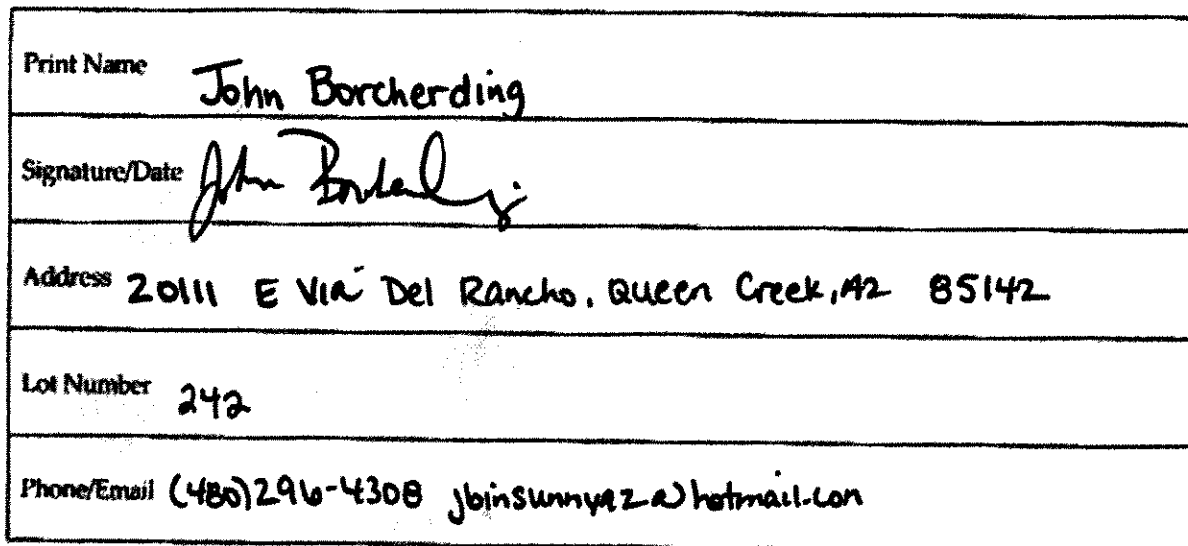 Print Name John Borcherding
Signature/Date John Borcherding
Address 20111 E Via Del Rancho, Queen Creek, AZ 85142
Lot Number 242
Phone/Email (480)296-4308 jbinsunnyaz@hotmail.com